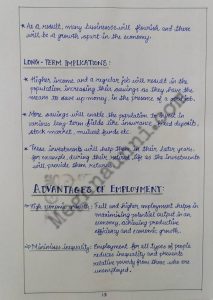 * As a result, many businesses will flourish and there
will be a growth spurt in the economy.
LONG-TERM IMPLICATIONS:
* Higher income and a regular job will result in the
population increasing their savings as they have the
means to save up money, in the presence of a job.
* More savings will enable the population to invest in
various long-term fields like insurance, fixed deposits,
stock market, mutual funds etc.
* These investments will help them in their later years,
for example, during their retired life as the investments
will provide them returns.
ADVANTAGES OF EMPLOYMENT:
High economic growth: Full and higher employment helps in
maximising potential output in an
economy, achieving productive
efficiency and economic growth.
Minimises inequality: Employment for all types of people
reduces inequality and prevents
relative poverty from those who are
unemployed.
13